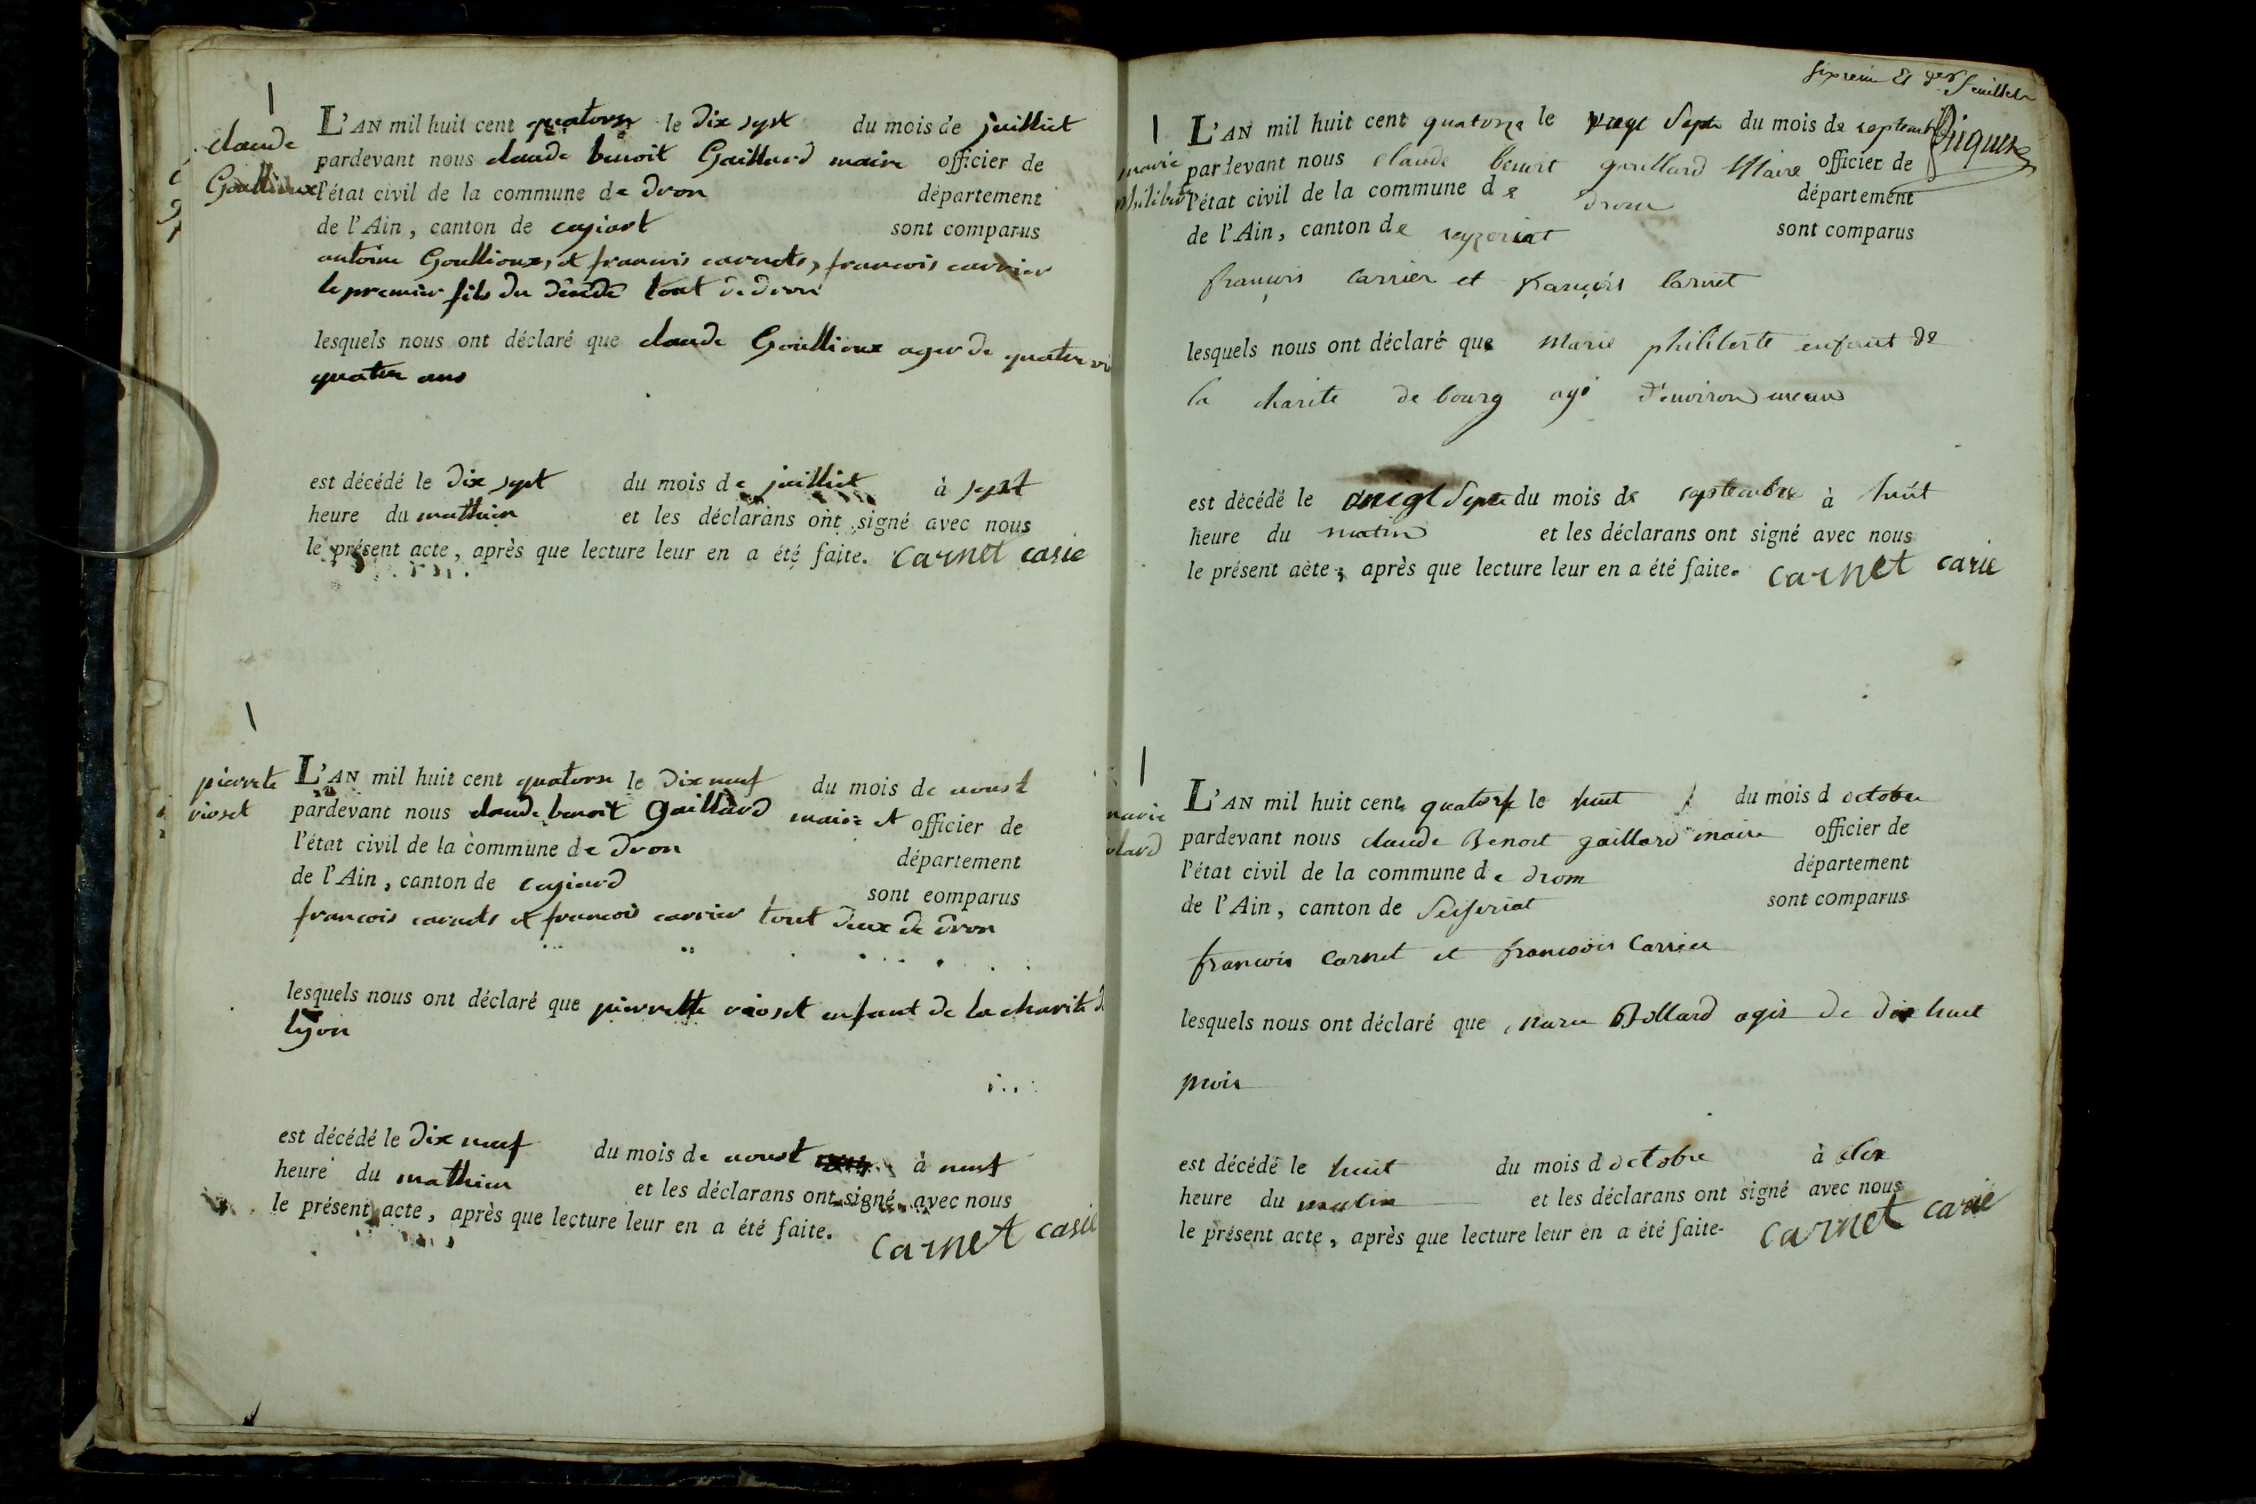 claude
Goullioux
L'AN mil huit cent quatorze le dix sept du mois de juilliet
pardevant nous claude benoit Gaillard maire officier de
l'état civil de la commune de dron département
de l'Ain, canton de sont comparus
antoine Goullioux, et francois carnets, francois carrier
le premier fils du dêcêdê tout de dron
lesquels nous ont déclaré que claude Goullioux ager de quatre
quatre ans
est décédé le dix sept du mois de juilliet à sept
heure du mathien et les déclarans ont signé avec nous
le présent acte, après que lecture leur en a été faite. carnet casie
pierrete
rioset
L'AN mil huit cent quatorse le dix neuf du mois de aoust
pardevant nous claude benoit gaillard maire et officier de
l'état civil de la commune de dron département
de l'Ain, canton de sont comparus
francois carnets et francois carrier tout deux de dron
lesquels nous ont déclaré que pierrette rioset enfant de la charité
lyon
est décédé le dix neuf du mois de aoust à neuf
heure du mathien et les déclarans ont signé avec nous
le présent acte, après que lecture leur en a été faite. carnet casie
feuillet
marie
philiberte
L'AN mil huit cent quatorze le Sept du mois de septembre
pardevant nous claude benoit gaillard Maire officier de
l'état civil de la commune de drom département
de l'Ain, canton de seyzeriat sont comparus
françois carrier et françois Carnet
lesquels nous ont déclaré que Marie philiberte enfant de
la charite de bourg agé d'environ
est décédé le Sept du mois de septembre à huit
heure du matin et les déclarans ont signé avec nous
le présent acte, après que lecture leur en a été faite. carnet carie
marie
L'AN mil huit cent quatorze le huit du mois d octobre
pardevant nous claude Benoit gaillard maire officier de
l'état civil de la commune de drom département
de l'Ain, canton de Seiseriat sont comparus
francois Carnet et francois Carrier
lesquels nous ont déclaré que marie Bollard agis de dix huit
mois
est décédé le huit du mois d octobre à dix
heure du matin et les déclarans ont signé avec nous
le présent acte, après que lecture leur en a été faite. carnet carie